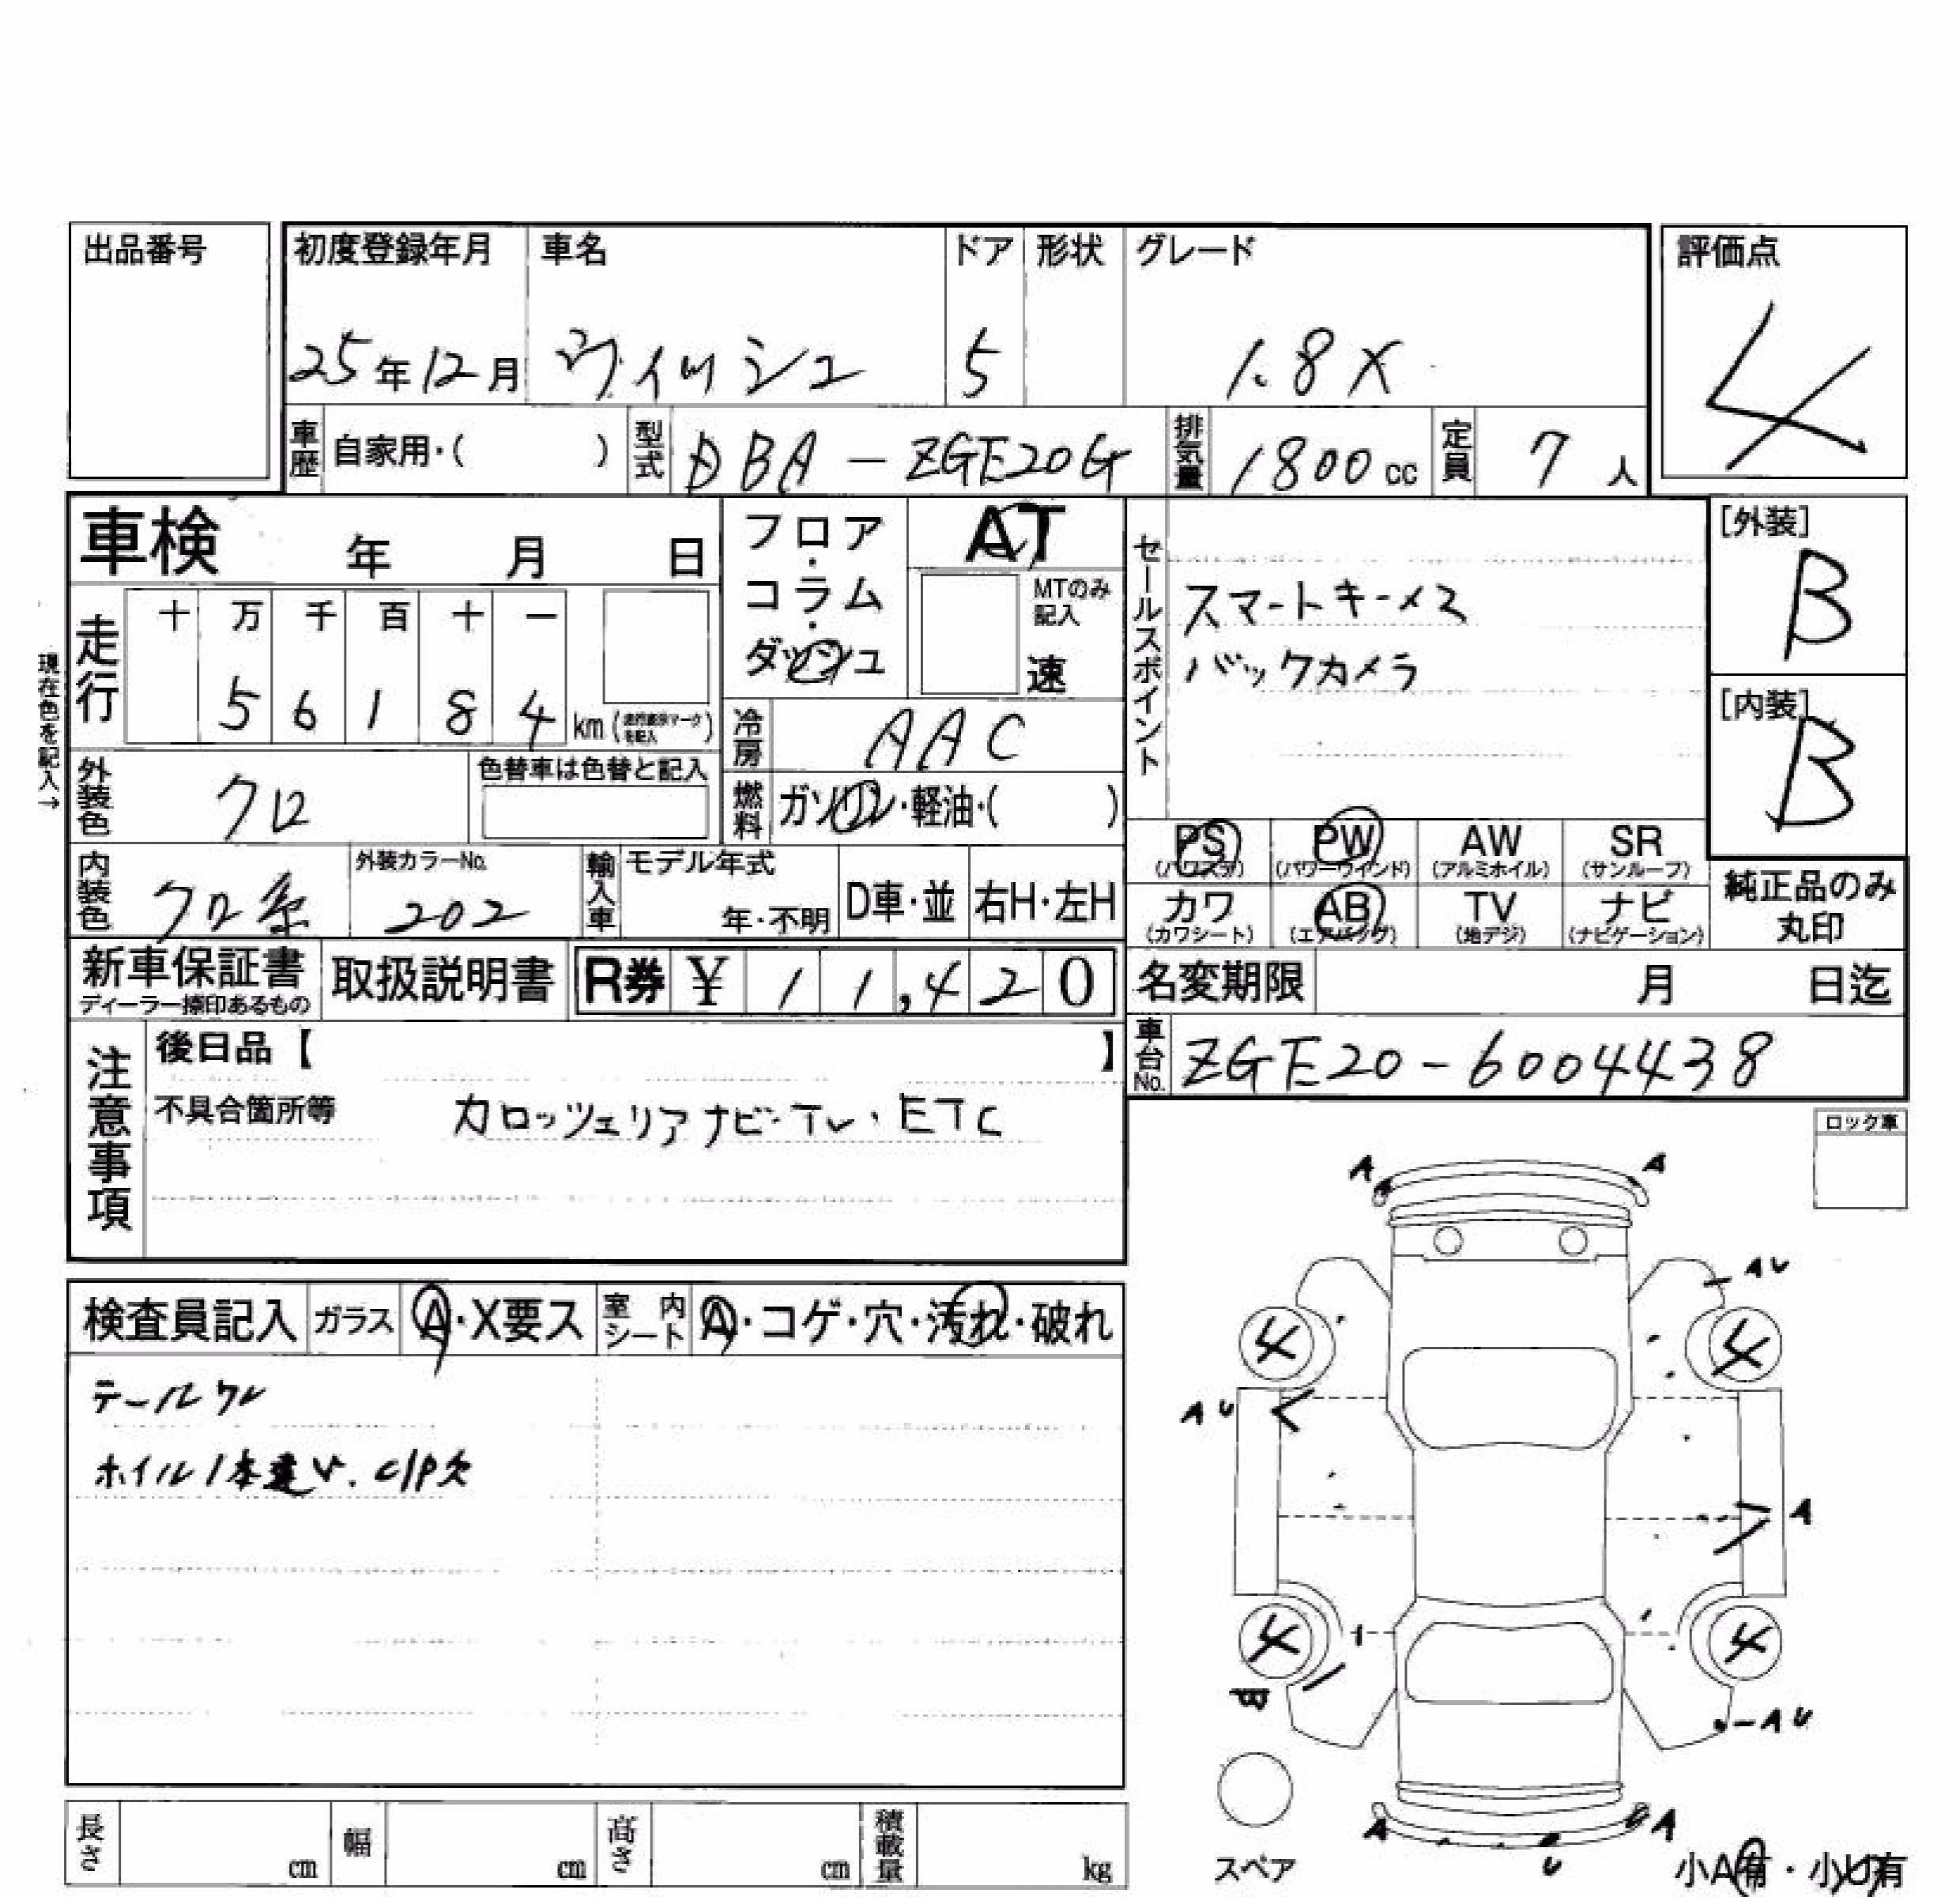 出品番号
初度登録年月 車名 ドア 形状 グレード 評価点
25年12月 ヴィッシュ 5 1.8X 4
車歴 自家用・( ) 型式 DBA-ZGE20G 排気量 1800cc 定員 7人
車検 年 月 日
フロア・コラム・ダッシュ
AT
MTのみ記入
速
セールスポイント
スマートキーメ2
バックカメラ
[外装]
B
[内装]
B
現在色を記入→
走行 十 万 千 百 十 一
5 6 1 8 4 km
冷房 AAC
外装色 クロ 色替車は色替と記入
燃料 ガソリン・軽油・( )
PS (パワステ) PW (パワーウインド) AW (アルミホイル) SR (サンルーフ)
カワ (カワシート) AB (エアバッグ) TV (地デジ) ナビ (ナビゲーション)
純正品のみ
丸印
内装色 クロ系 外装カラーNo. 202 輸入車 モデル年式 年・不明 D車・並 右H・左H
新車保証書 ディーラー捺印あるもの 取扱説明書 R券 ¥ 11,420
名変期限 月 日迄
車台No. ZGE20-6004438
注意事項
後日品【 】
不具合箇所等 カロッツェリアナビ・TV・ETC
ロック車
検査員記入 ガラス A・X要ス 室内シート A・コゲ・穴・汚れ・破れ
テールワレ
ホイル1本違い. C/P欠
A A
AU
4 4
AU
A
4 4
AU
A A
U
スペア
小A有・小U有
長さ cm 幅 cm 高さ cm 積載量 kg